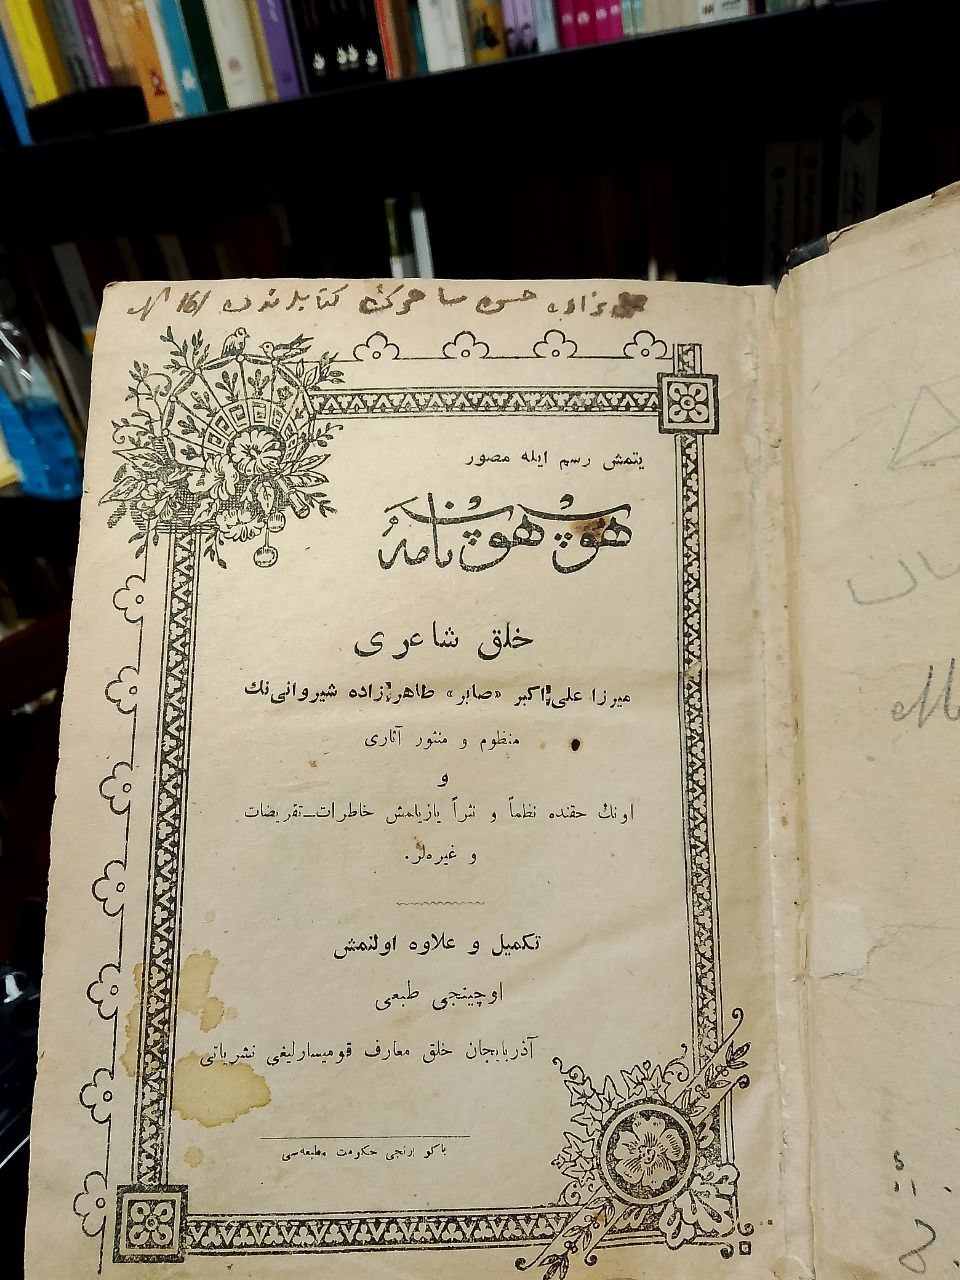 زاده حسن ساحرك كتابلرندن № 161
يتمش رسم ايله مصور
هوپ هوپ نامه
خلق شاعرى
ميرزا على اكبر «صابر» طاهر زاده شيروانى نك
منظوم و منثور آثارى
و
اونك حقنده نظماً و نثراً يازيلمش خاطرات ـ تقريضات
و غيره لر.
تكميل و علاوه اولنمش
اوچينجى طبعى
آذربايجان خلق معارف قوميسارليغى نشرياتى
باكو برنجى حكومت مطبعه سى